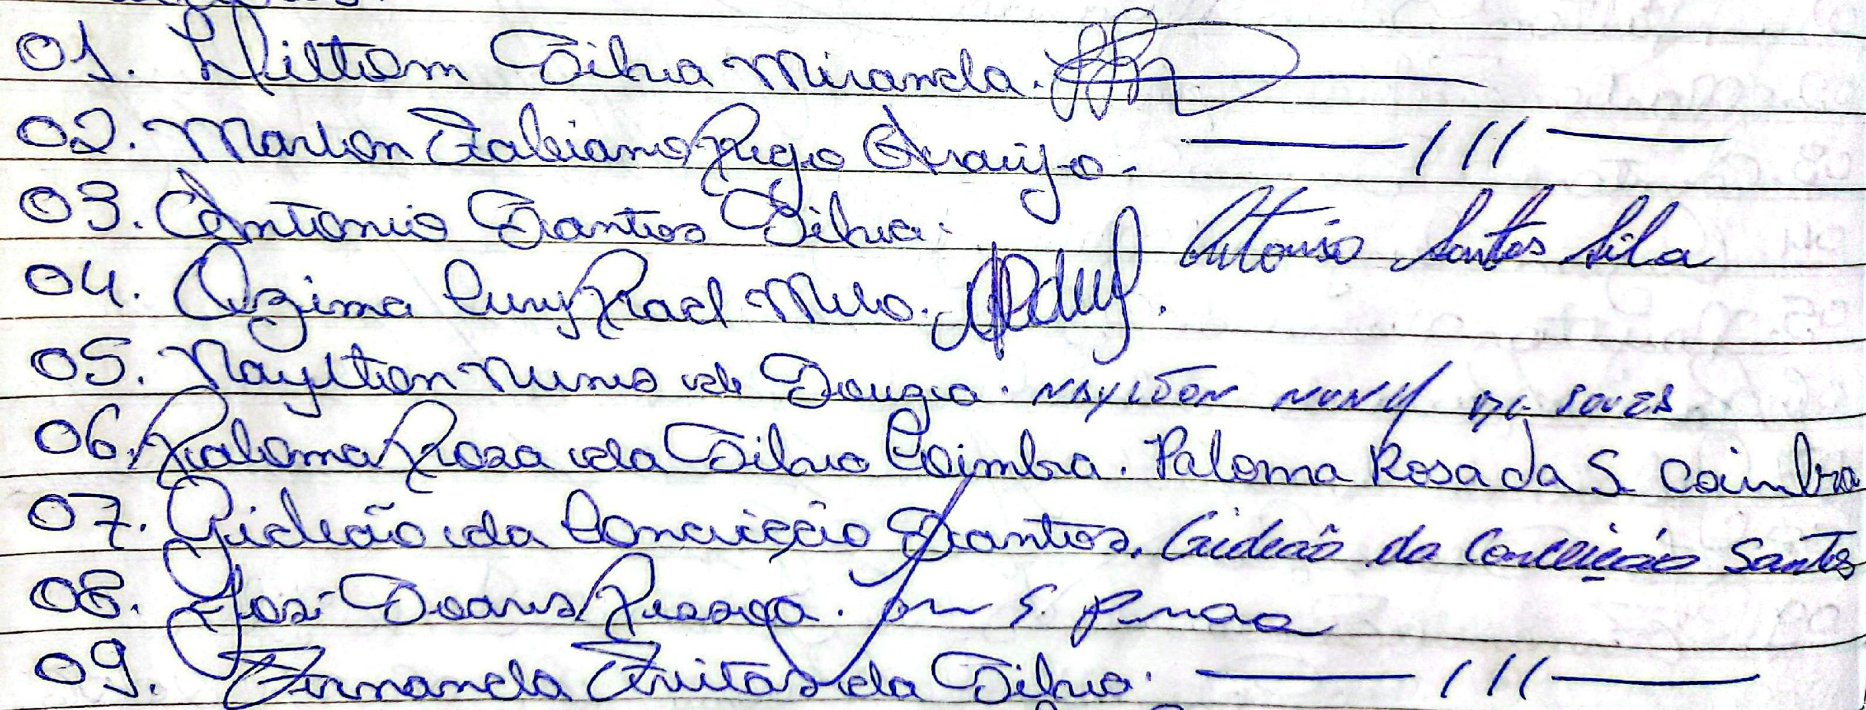 01. Wiltom Silva Miranda.
02. Marlon Fabiano Rego Araujo. ——— / / / ———
03. Antonio Santos Silva. Antonio Santos Silva
04. Ozima Cury Rad Melo.
05. Naylton Nunes de Souza. NAYLTON NUNES DE SOUZA
06. Paloma Rosa da Silva Coimbra. Paloma Rosa da S. Coimbra
07. Gideão da Conceição Santos. Gideão da Conceição Santos
08. José Soares Pessoa.
09. Fernanda Freitas da Silva. ——— / / / ———